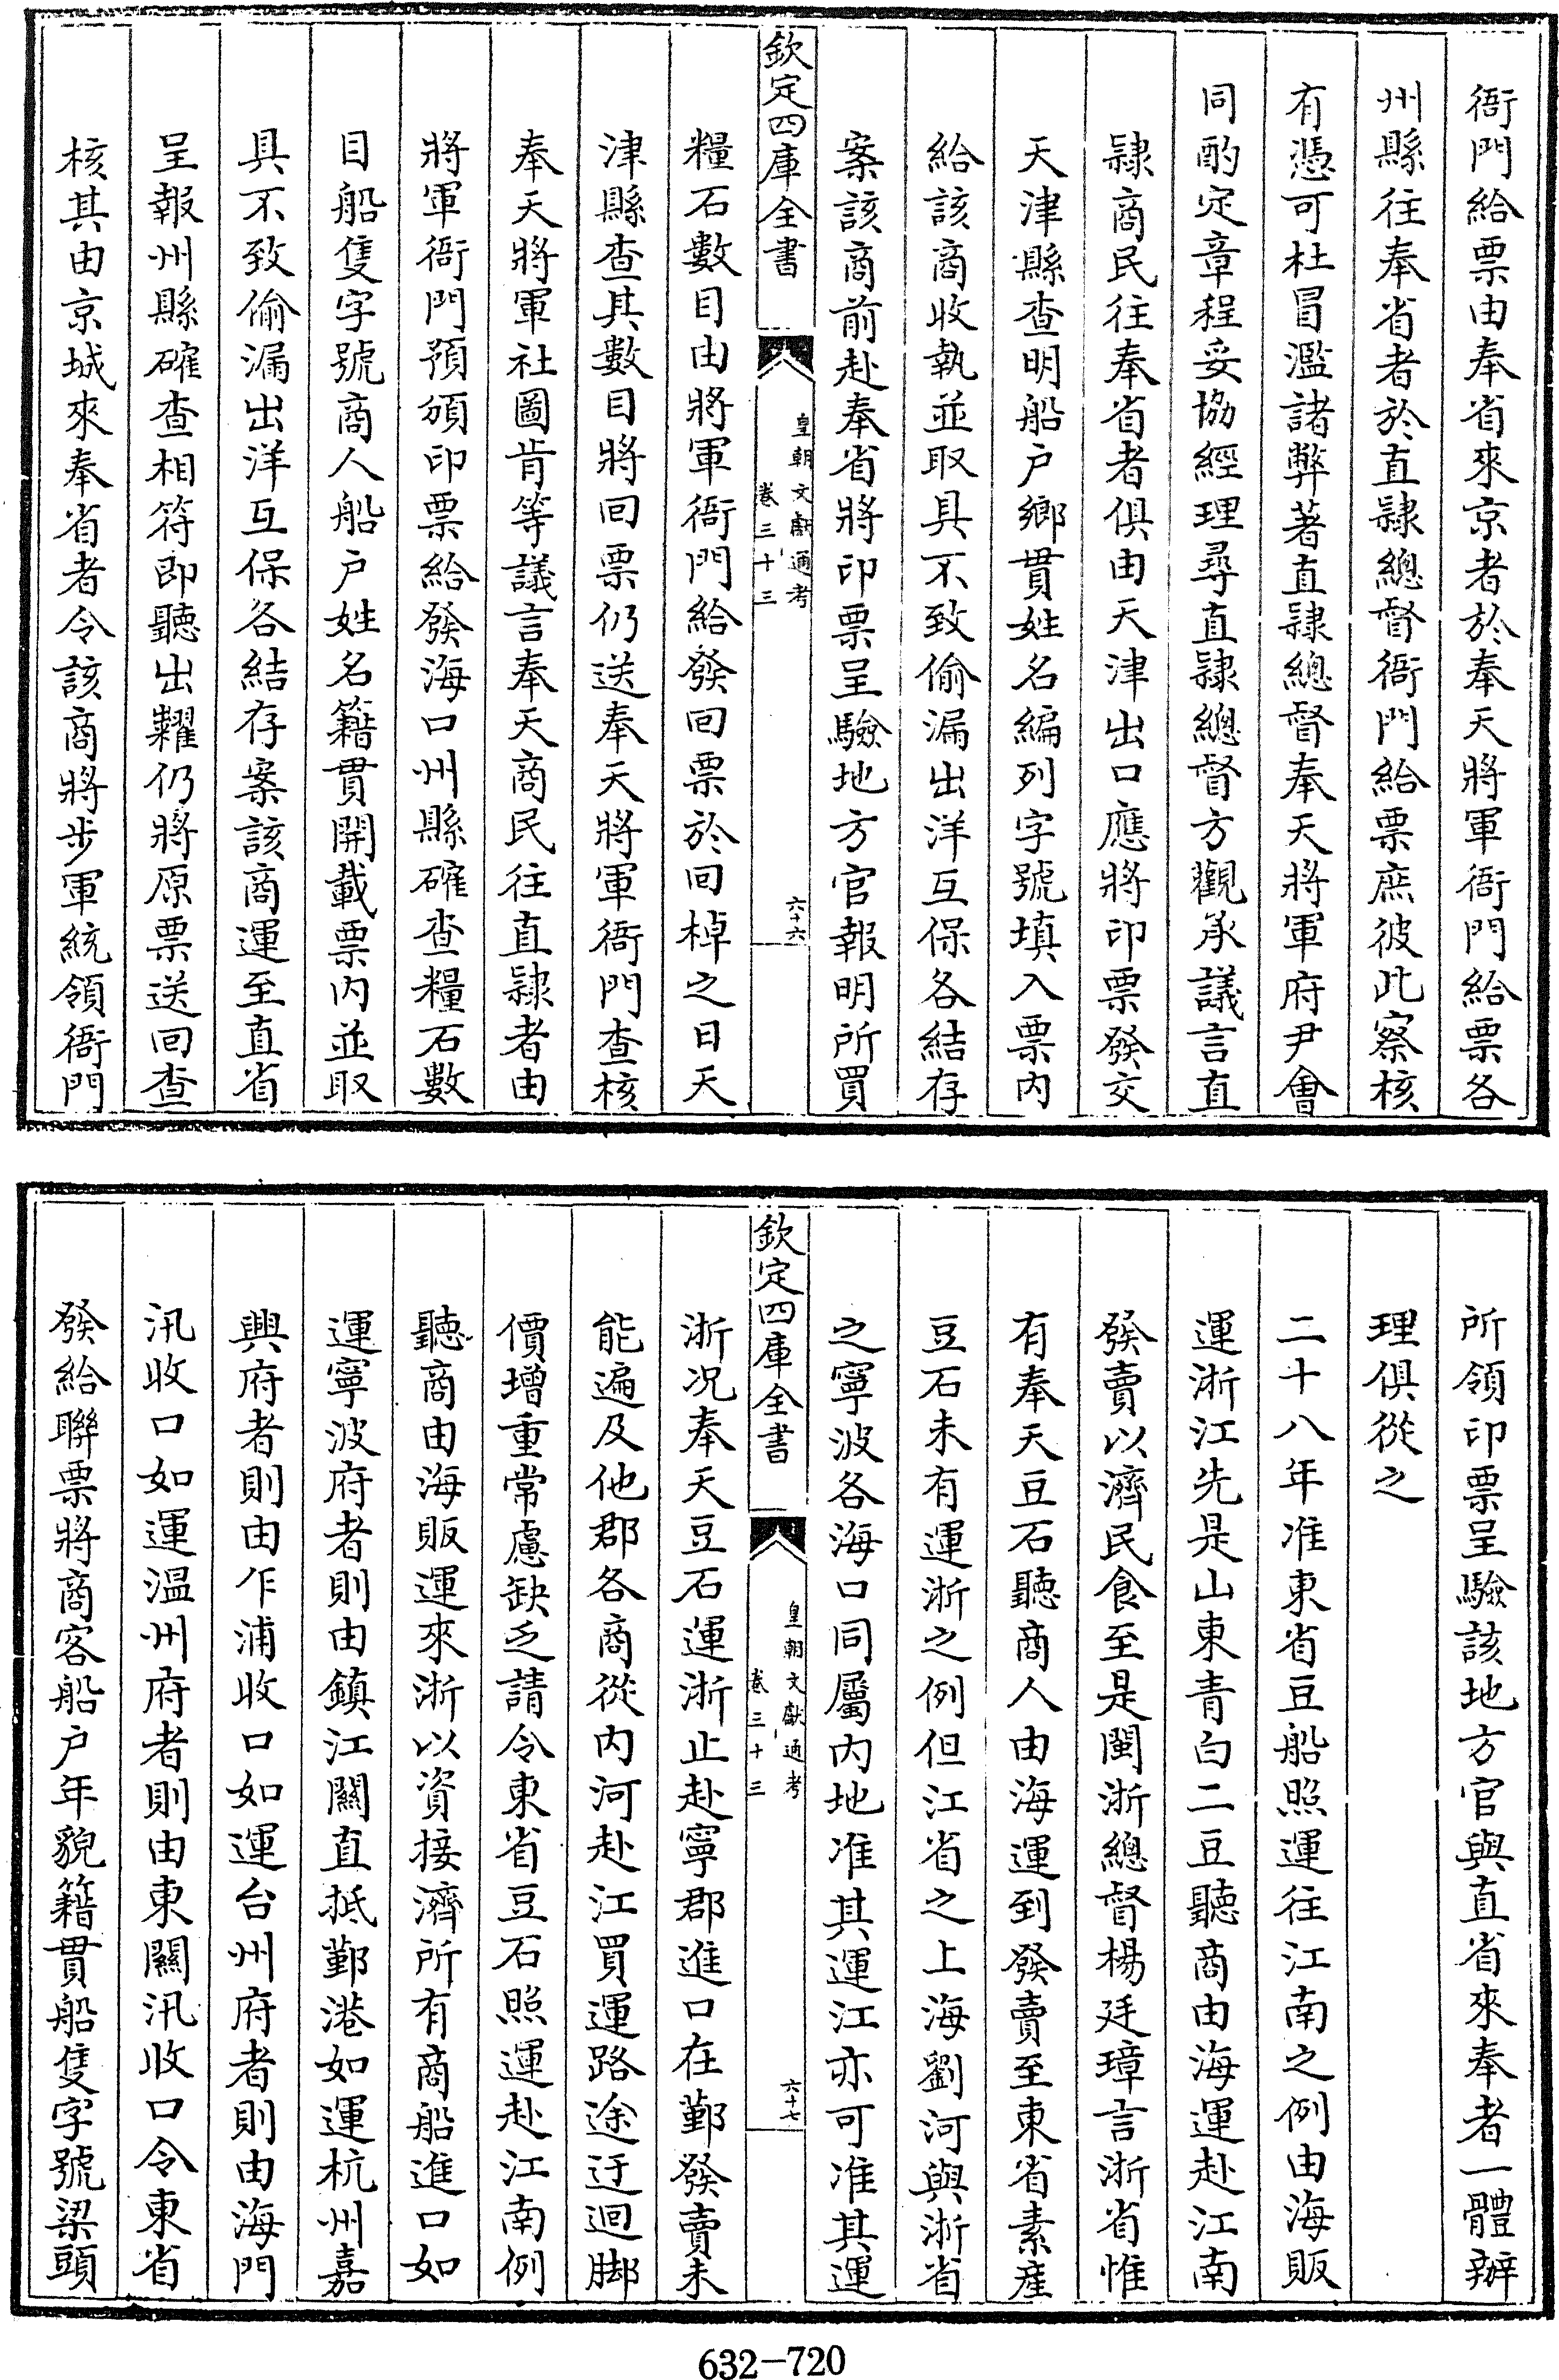 衙門給票由奉省來京者於奉天將軍衙門給票各
州縣往奉省者於直隸總督衙門給票庶彼此察核
有憑可杜冒濫諸弊著直隸總督奉天將軍府尹會
同酌定章程妥協經理尋直隸總督方觀承議言直
隸商民往奉省者俱由天津出口應將印票發交
天津縣查明船户鄉貫姓名編列字號填入票内
給該商收執並取具不致偷漏出洋互保各結存
案該商前赴奉省將印票呈驗地方官報明所買
欽定四庫全書
皇朝文獻通考
卷三十三
六十六
糧石數目由將軍衙門給發回票於回棹之日天
津縣查其數目將回票仍送奉天將軍衙門查核
奉天將軍社圖肯等議言奉天商民往直隸者由
將軍衙門預頒印票給發海口州縣確查糧石數
目船隻字號商人船户姓名籍貫開載票内並取
具不致偷漏出洋互保各結存案該商運至直省
呈報州縣確查相符即聽出糶仍將原票送回查
核其由京城來奉省者令該商將步軍統領衙門
所領印票呈驗該地方官與直省來奉者一體辦
理俱從之
二十八年准東省豆船照運往江南之例由海販
運浙江先是山東青白二豆聽商由海運赴江南
發賣以濟民食至是閩浙總督楊廷璋言浙省惟
有奉天豆石聽商人由海運到發賣至東省素產
豆石未有運浙之例但江省之上海劉河與浙省
之寧波各海口同屬内地准其運江亦可准其運
欽定四庫全書
皇朝文獻通考
卷三十三
六十七
浙况奉天豆石運浙止赴寧郡進口在鄞發賣未
能遍及他郡各商從内河赴江買運路途迂迴脚
價增重常慮缺乏請令東省豆石照運赴江南例
聽商由海販運來浙以資接濟所有商船進口如
運寧波府者則由鎮江關直抵鄞港如運杭州嘉
興府者則由乍浦收口如運台州府者則由海門
汛收口如運温州府者則由東關汛收口令東省
發給聯票將商客船户年貌籍貫船隻字號梁頭
632-720